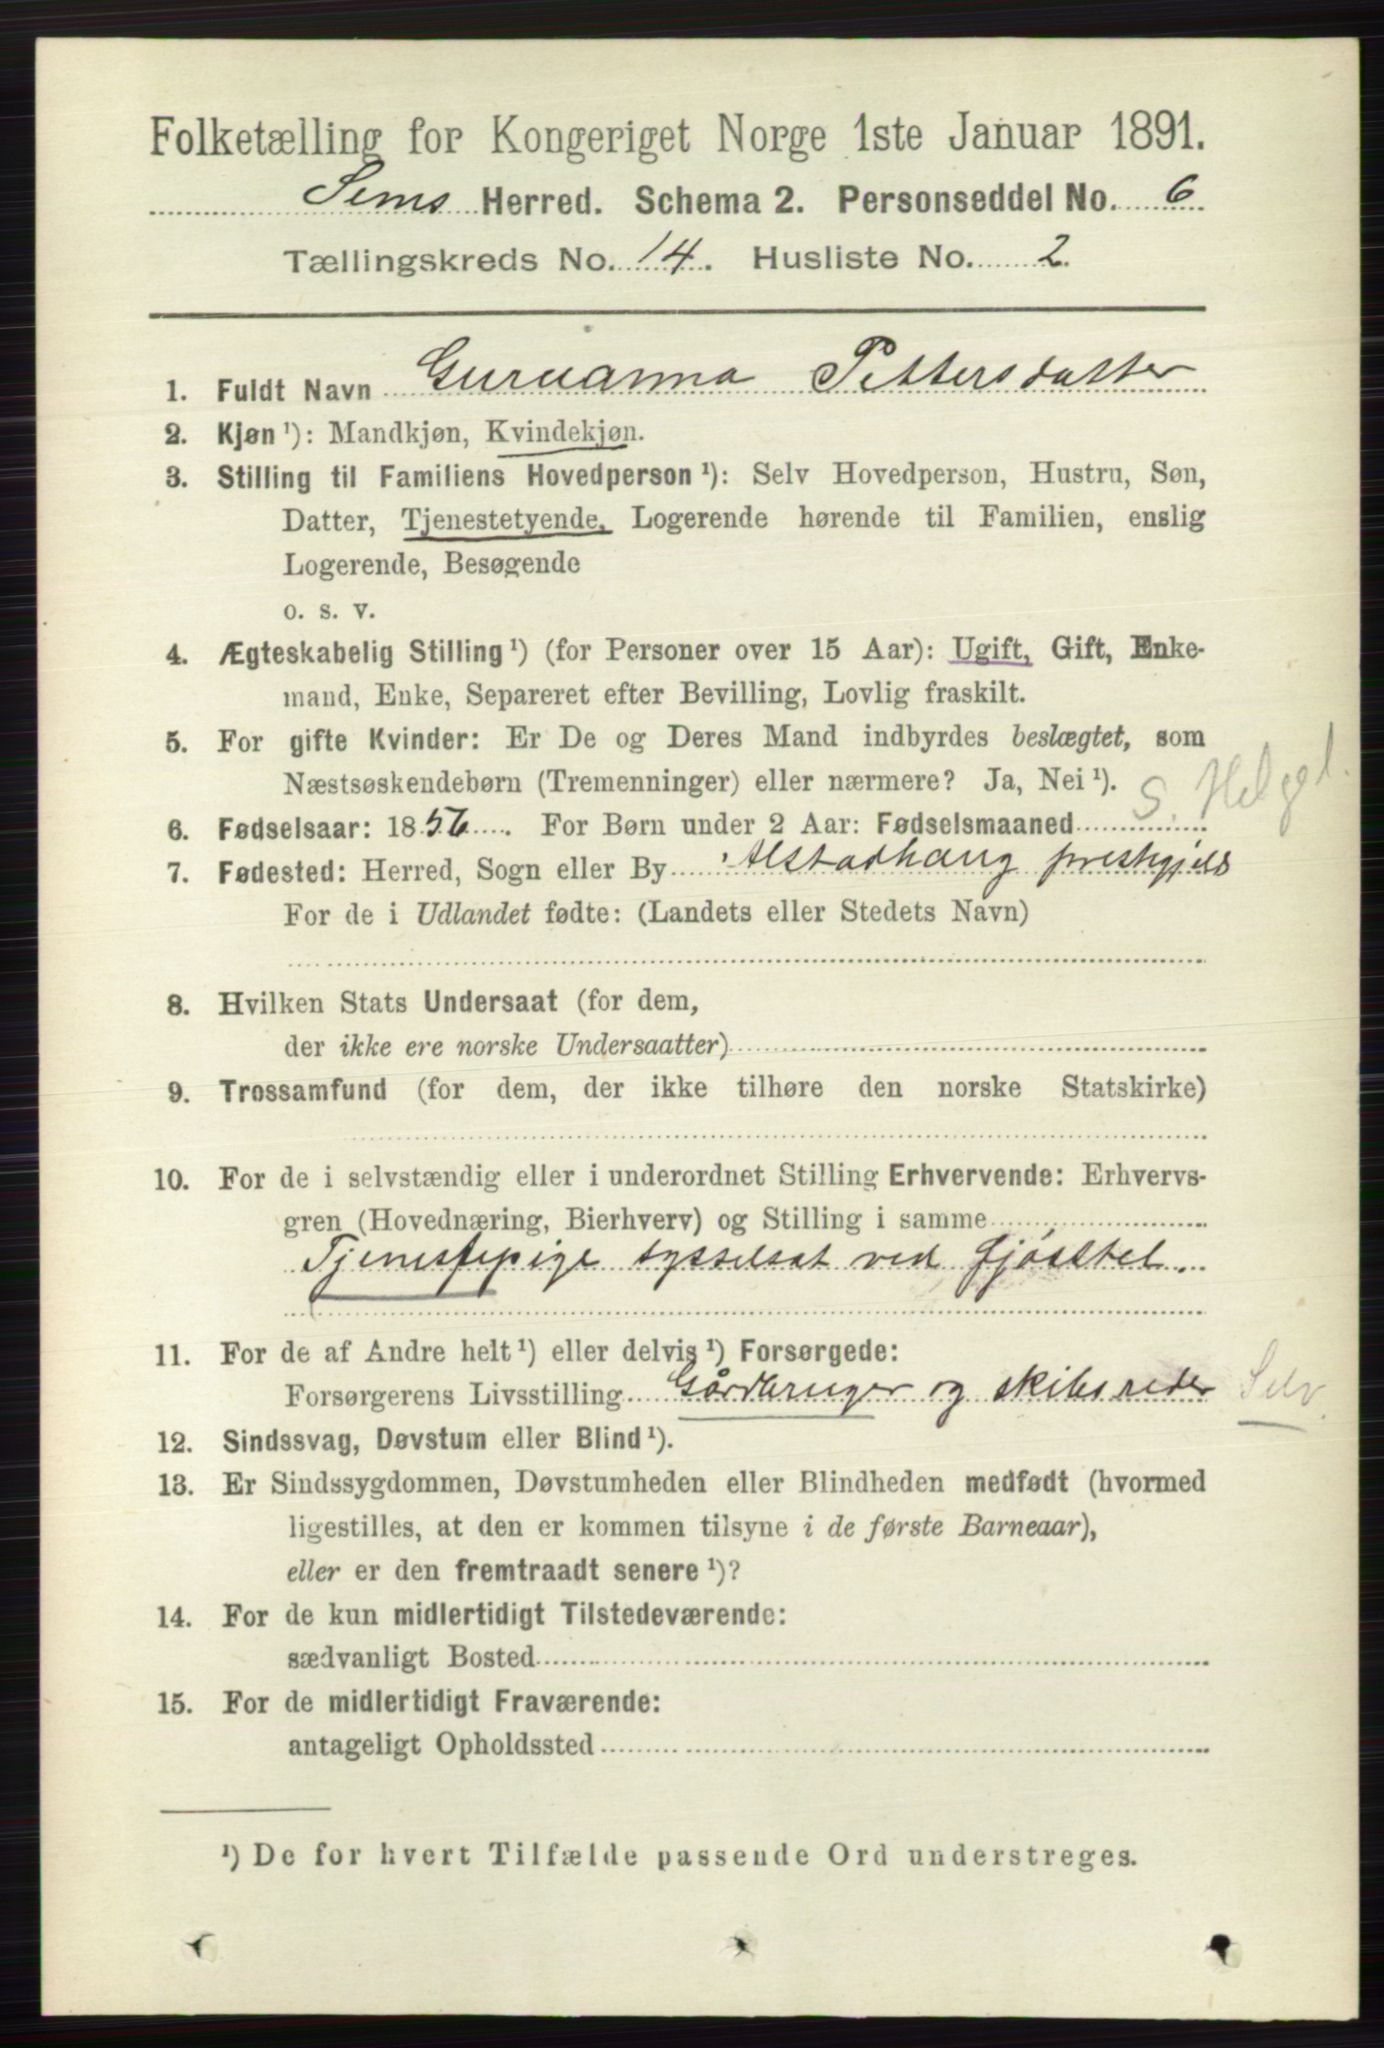 Folketælling for Kongeriget Norge 1ste Januar 1891.
Sems Herred. Schema 2. Personseddel No. 6
Tællingskreds No. 14. Husliste No. 2.
1. Fuldt Navn Guruanna Pettersdatter
2. Kjøn ¹): Mandkjøn, Kvindekjøn.
3. Stilling til Familiens Hovedperson ¹): Selv Hovedperson, Hustru, Søn,
Datter, Tjenestetyende, Logerende hørende til Familien, enslig
Logerende, Besøgende
o. s. v.
4. Ægteskabelig Stilling ¹) (for Personer over 15 Aar): Ugift, Gift, Enke-
mand, Enke, Separeret efter Bevilling, Lovlig fraskilt.
5. For gifte Kvinder: Er De og Deres Mand indbyrdes beslægtet, som
Næstsøskendebørn (Tremenninger) eller nærmere? Ja, Nei ¹).
S. Helggl.
6. Fødselsaar: 1856. For Børn under 2 Aar: Fødselsmaaned
7. Fødested: Herred, Sogn eller By Alstadhaug prestegjeld
For de i Udlandet fødte: (Landets eller Stedets Navn)
8. Hvilken Stats Undersaat (for dem,
der ikke ere norske Undersaatter)
9. Trossamfund (for dem, der ikke tilhøre den norske Statskirke)
10. For de i selvstændig eller i underordnet Stilling Erhvervende: Erhvervs-
gren (Hovednæring, Bierhverv) og Stilling i samme
Tjenestepige sysselsat ved fjøsstel.
11. For de af Andre helt ¹) eller delvis ¹) Forsørgede:
Forsørgerens Livsstilling Gårdbruger og skibsreder Selv
12. Sindssvag, Døvstum eller Blind ¹).
13. Er Sindssygdommen, Døvstumheden eller Blindheden medfødt (hvormed
ligestilles, at den er kommen tilsyne i de første Barneaar),
eller er den fremtraadt senere ¹)?
14. For de kun midlertidigt Tilstedeværende:
sædvanligt Bosted
15. For de midlertidigt Fraværende:
antageligt Opholdssted
¹) De for hvert Tilfælde passende Ord understreges.